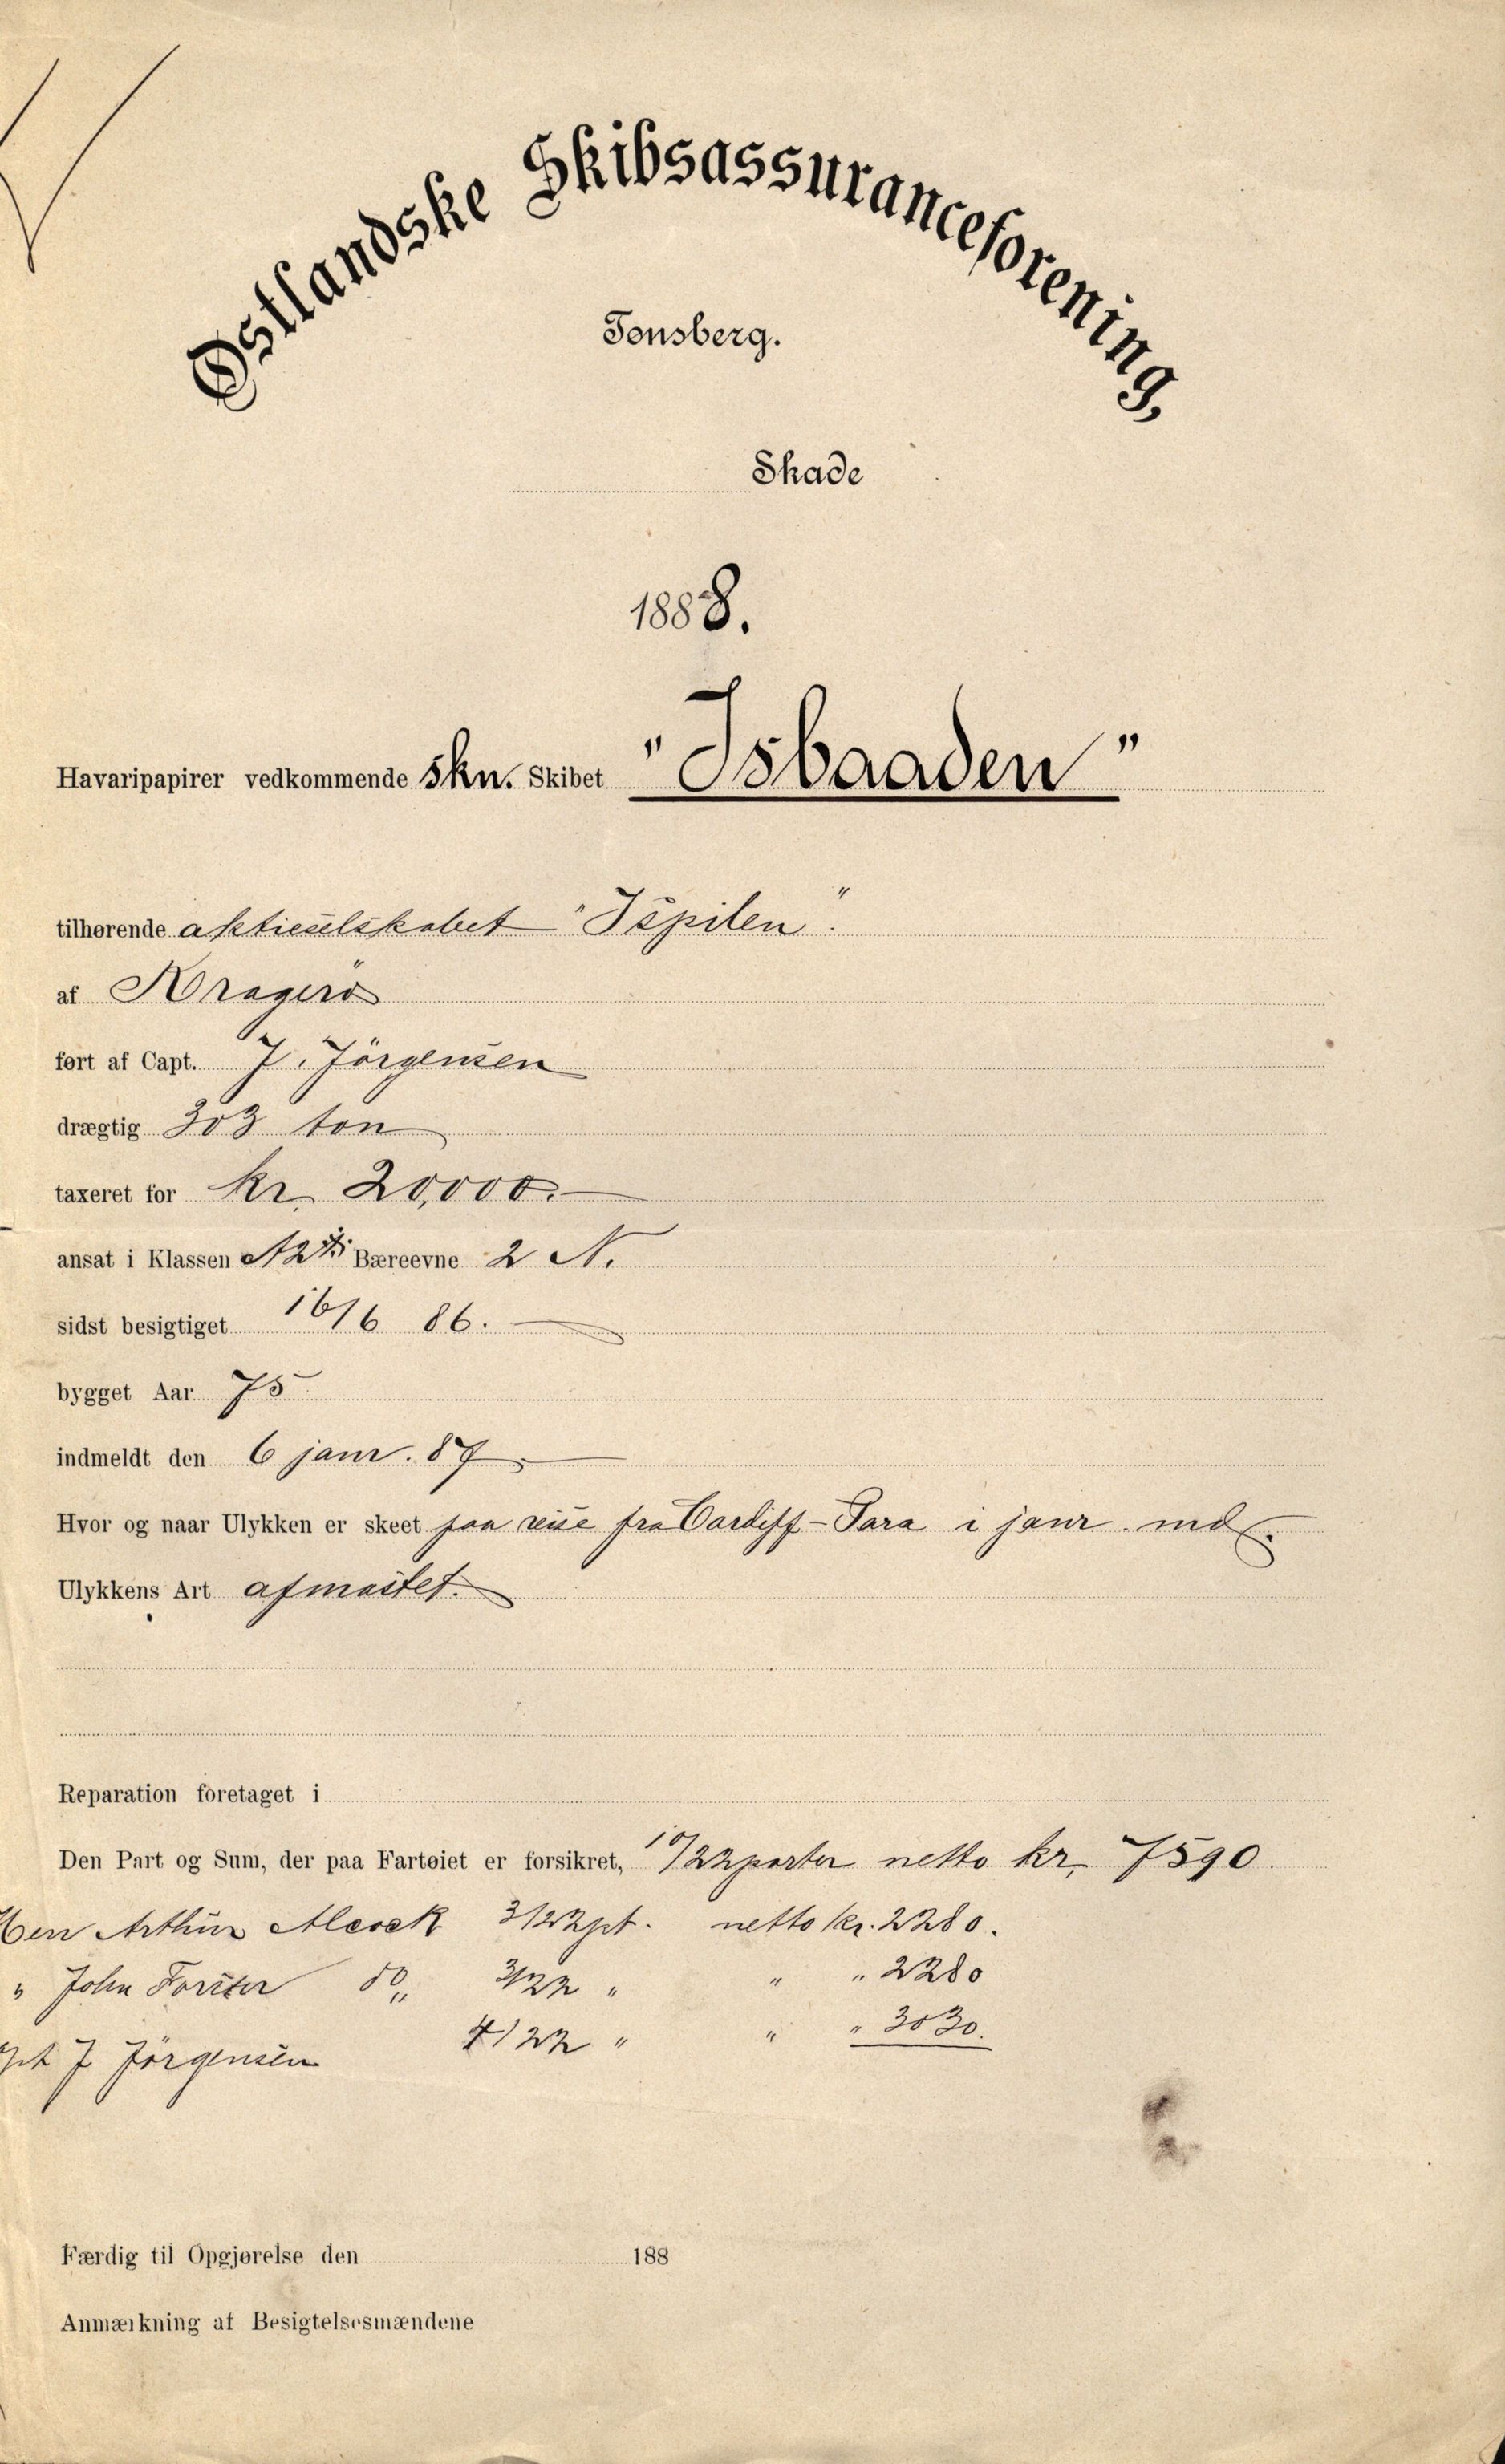 Østlandske Skibsassuranceforening,
Tønsberg.
Skade
1888.
Havaripapirer vedkommende Skn. Skibet "Isbaaden"
tilhørende aktieselskabet "Ispilen".
af Kragerö
ført af Capt. J. Jörgensen
drægtig 303 ton
taxeret for kr. 20,000.—
ansat i Klassen A2 Bæreevne 2 N.
sidst besigtiget 16/6 86.
bygget Aar 75
indmeldt den 6 janr. 87
Hvor og naar Ulykken er skeet paa reise fra Cardiff - Para i janr. md.
Ulykkens Art afmastet.
Reparation foretaget i
Den Part og Sum, der paa Fartøiet er forsikret, 10/22 parter netto kr. 7590.
Arthur Alcock 3/22 pt. netto kr. 2280.
" John Forster do " 3/22 " " " 2280
J Jörgensen 4/22 " " " 3030.
Færdig til Opgjørelse den 188
Anmærkning af Besigtelsesmændene